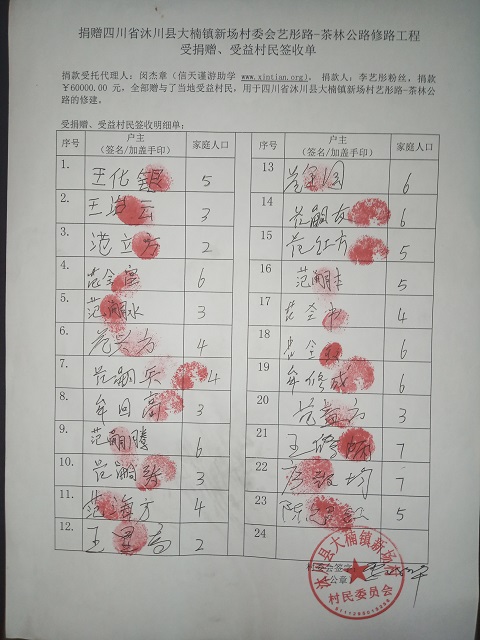 捐赠四川省沐川县大楠镇新场村委会艺彤路-茶林公路修路工程
受捐赠、受益村民签收单
捐款受托代理人：闵杰章（信天谨游助学 www.xintian.org），捐款人：李艺彤粉丝，捐款
￥60000.00 元，全部赠与了当地受益村民，用于四川省沐川县大楠镇新场村艺彤路-茶林公
路的修建。
受捐赠、受益村民签收明细单：
序号 户主（签名/加盖手印） 家庭人口
1. 王化银 5
2. 王 云 3
3. 范立方 2
4. 6
5. 范嗣水 3
6. 范兴方 4
7. 范嗣 4
8. 牟回高 3
9. 范嗣腾 6
10. 范嗣 3
11. 范海方 4
12. 王 高 2
序号 户主（签名/加盖手印） 家庭人口
13 6
14 范嗣友 6
15 范红方 5
16 范嗣丰 5
17 4
18 6
19 牟修成 6
20 范 方 3
21 王 7
22 均 7
23 陈 5
24
村委会签字
公章
沐川县大楠镇新场村
村民委员会